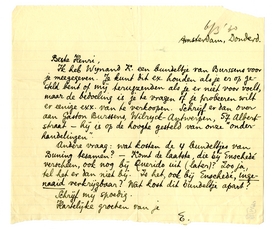 6/3 '40
Amsterdam, Donderd.
Beste Henri,
Ik heb Wijnand K. een bundeltje van Burssens voor
je meegegeven. Je kunt dit ex. houden als je er op ge-
steld bent of mij terugzenden als je er niet voor voelt,
maar de bedoeling is je te vragen of je probeeren wilt
er eenige exx. van te verkoopen. Schrijf er dan even
aan Gaston Burssens Wilryck-Antwerpen, St Albert
straat – hij is op de hoogte gesteld van onze 'onder-
handelingen'.
Andere vraag: wat kosten de 4 bundeltjes van
Buning tesamen? – Komt de laatste, die bij Enschedé
verscheen, ook nog bij Querido uit (later)? Zoo ja,
tel het er dan niet bij. Is het, ook bij Enschedé, inge-
naaid verkrijgbaar? Wat kost dit bundeltje apart?
Schrijf mij spoedig.
Hartelijke groeten van je
E.